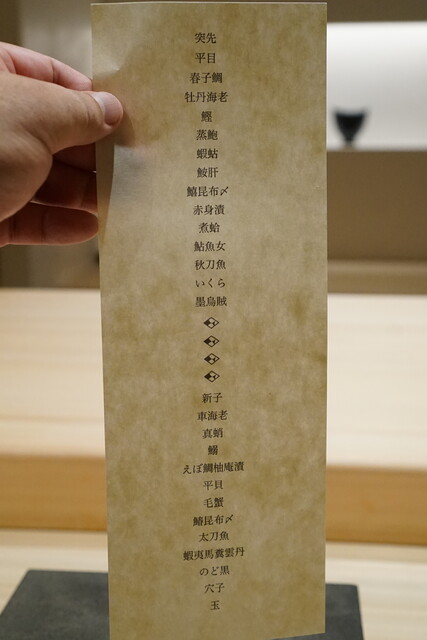 突先
平目
春子鯛
牡丹海老
鰹
蒸鮑
蝦蛄
鮟肝
鱚昆布〆
赤身漬
煮蛤
鮎魚女
秋刀魚
いくら
墨烏賊
新子
車海老
真蛸
鰯
えぼ鯛柚庵漬
平貝
毛蟹
鰆昆布〆
太刀魚
蝦夷馬糞雲丹
のど黒
穴子
玉